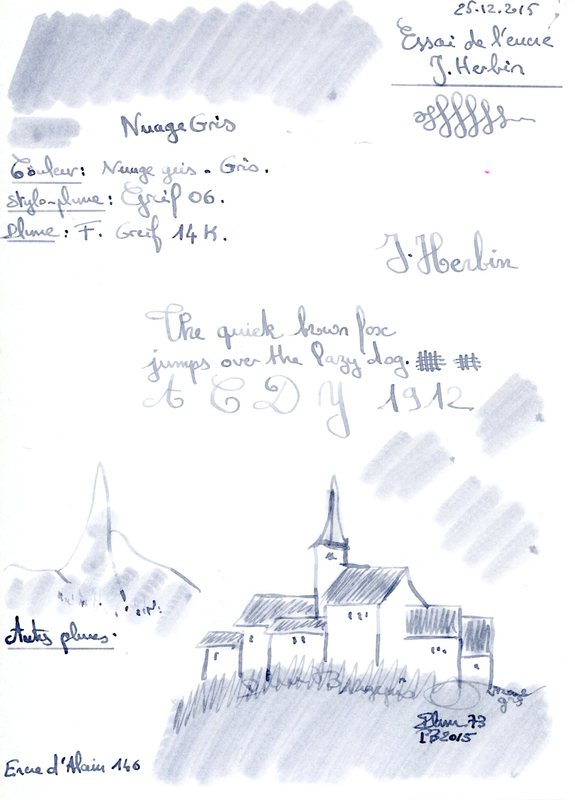 25.12.2015
Essai de l'encre
J. Herbin
Nuage Gris
Couleur: Nuage gris - Gris.
Stylo-plume: Egréf 06.
Plume: F. Greif 14K.
J. Herbin
The quick brown fox
jumps over the lazy dog.
A C D Y 1912
Autres plumes.
nuage
gris
Plum 73
PB2015
Encre d'Alain 146